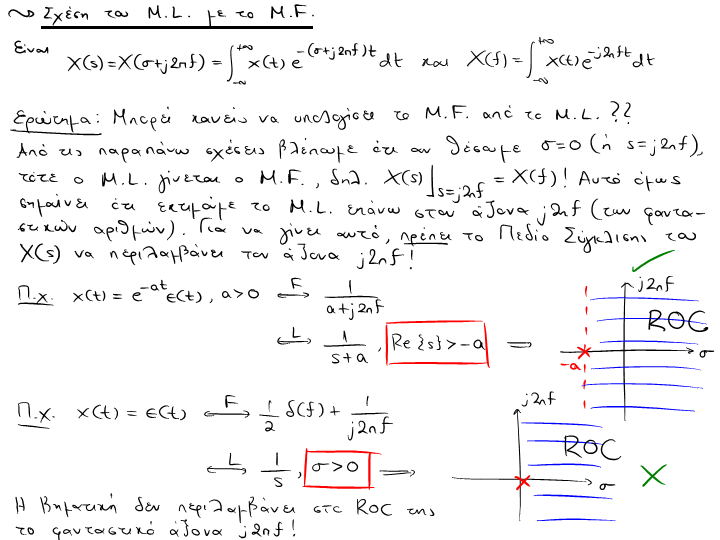 ~> Σχέση του M.L. με το M.F.
Είναι X(s)=X(σ+j2πf) = ∫_{-∞}^{+∞} x(t) e^{-(σ+j2πf)t} dt και X(f) = ∫_{-∞}^{+∞} x(t) e^{-j2πft} dt
Ερώτημα: Μπορεί κανείς να υπολογίσει το M.F. από το M.L. ??
Από τις παραπάνω σχέσεις βλέπουμε ότι αν θέσουμε σ=0 (ή s=j2πf),
τότε ο M.L. γίνεται ο M.F., δηλ. X(s)|_{s=j2πf} = X(f)! Αυτό όμως
σημαίνει ότι εκτιμάμε το M.L. επάνω στον άξονα j2πf (των φαντα-
στικών αριθμών). Για να γίνει αυτό, πρέπει το Πεδίο Σύγκλισης του
X(s) να περιλαμβάνει τον άξονα j2πf!
Π.χ. x(t) = e^{-at}ε(t), a>0 <--F--> 1/(a+j2πf)
<--L--> 1/(s+a), Re{s}>-a =
j2πf
ROC
σ
-a
Π.χ. x(t) = ε(t) <--F--> 1/2 δ(f) + 1/(j2πf)
<--L--> 1/s, σ>0 =>
j2πf
ROC
σ
Η βηματική δεν περιλαμβάνει στο ROC της
το φανταστικό άξονα j2πf!